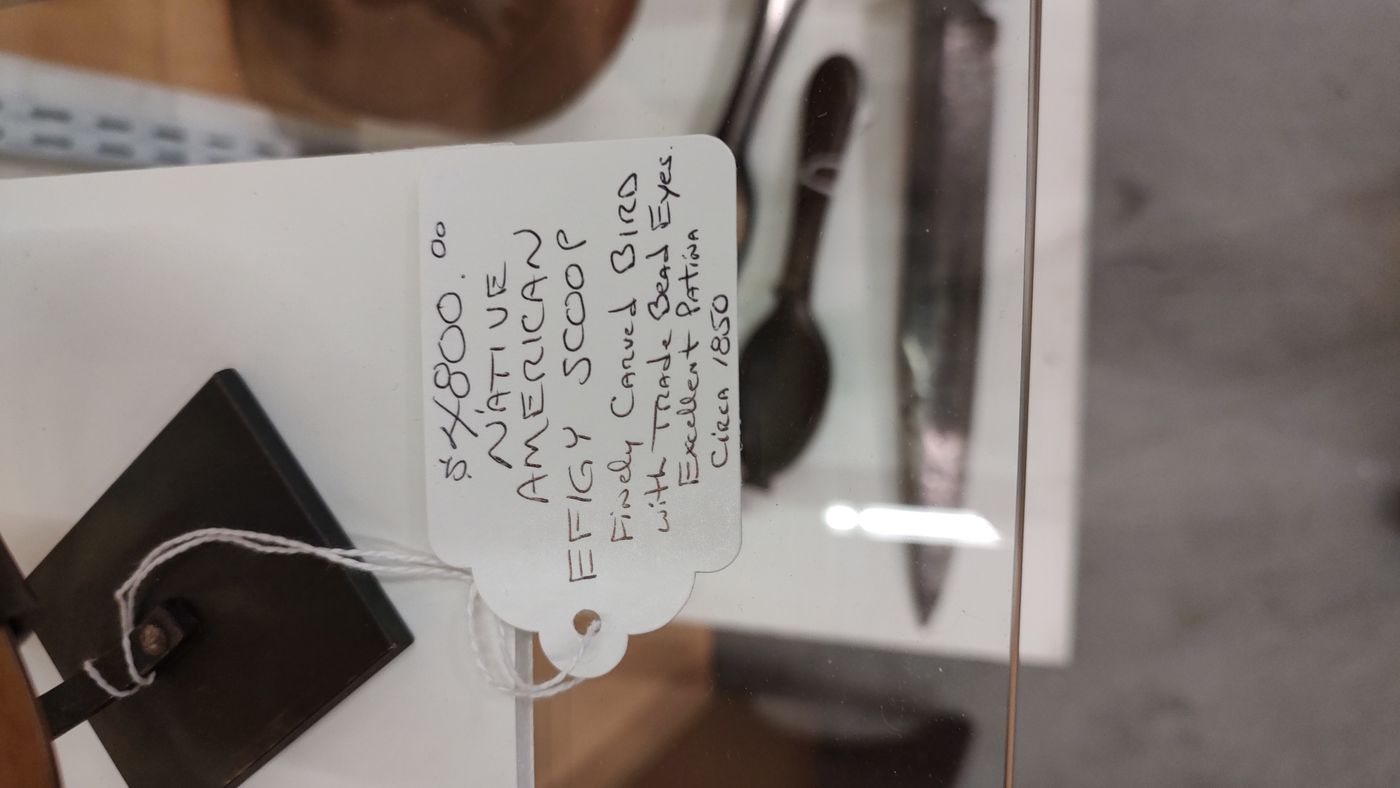 $4800.00
NATIVE
AMERICAN
EFIGY SCOOP
Finely Carved Bird
with Trade Bead Eyes.
Excellent Patina
Circa 1850